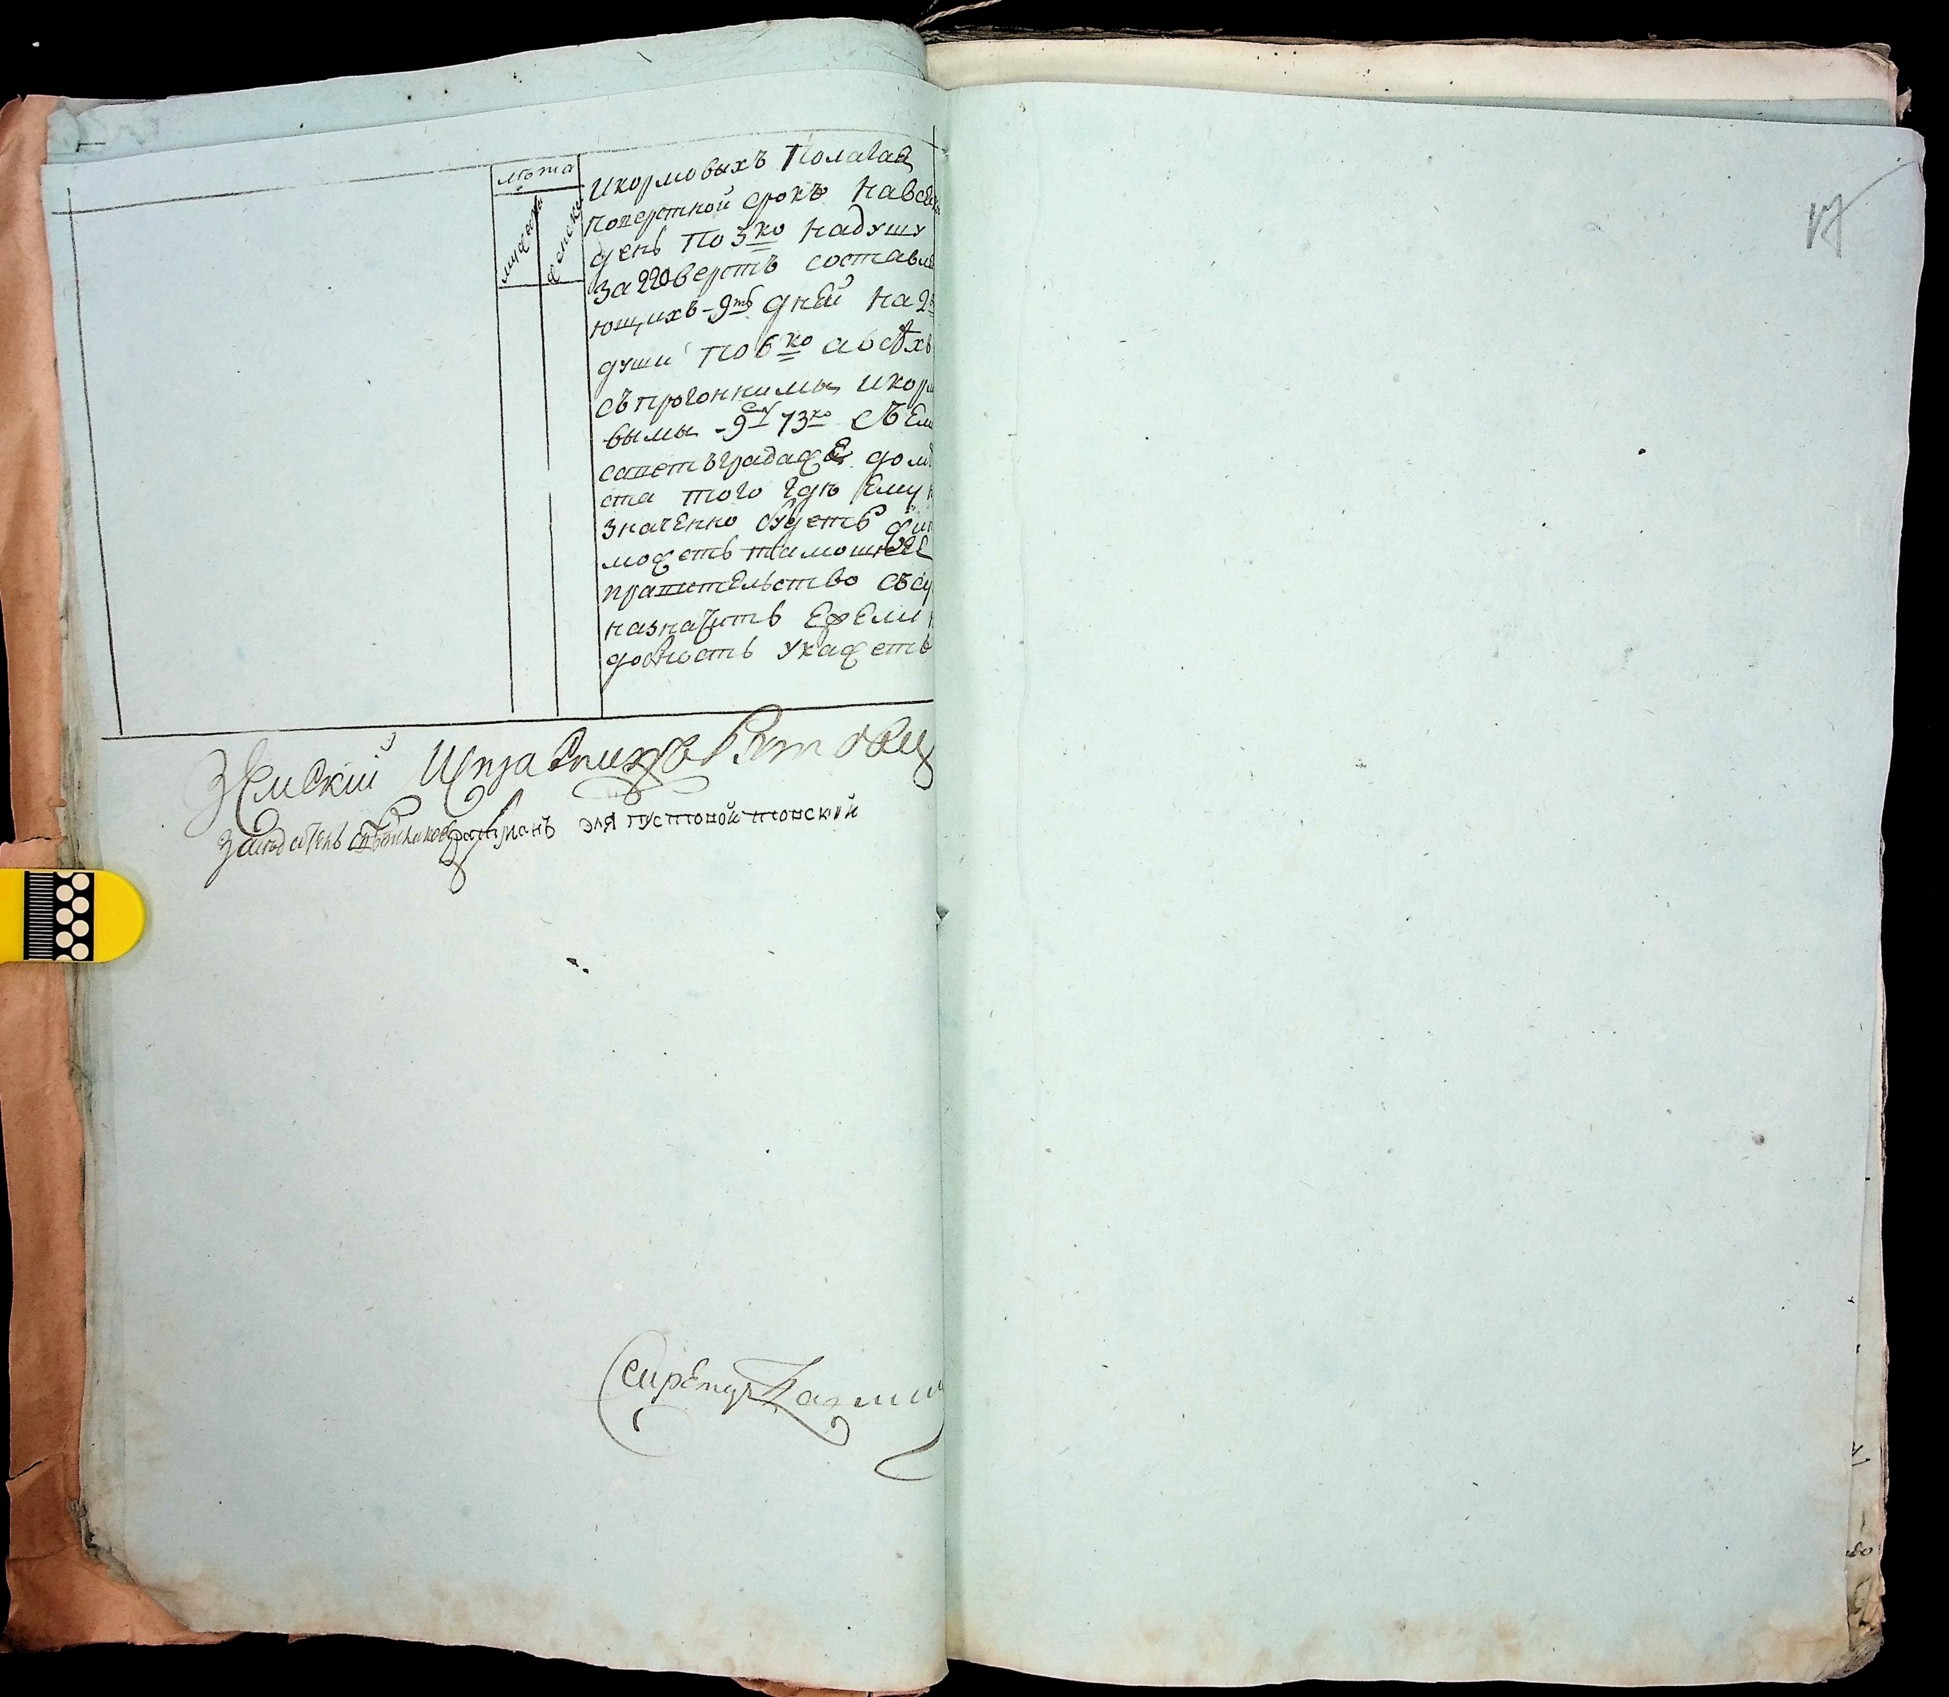 лѣта
мужска
женска
икормовыхъ полагая
поверстной срокъ навсяк
день по 3 ко надушу
за 220 верстъ составля
ющихъ - 9ть дней на 2
души по 6 ко авсѣхъ
съпрогоннимы икормо
вымы - 9 73 ко Съели
саветъградаже домѣ
ста того гдѣ ему н
значенно будетъ
можетъ тамошнее
правительство
назначить ежели
добность укажетъ
Земский Исправникъ
Заседатель для пустовойтовский
Сикретур
17